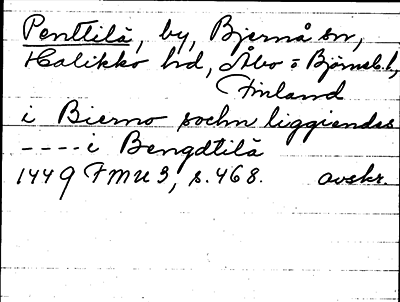 Penttilä, by, Bjernå sn,
Halikko hd, Åbo o Björneb. l,
Finland
i Bierno sochn liggiandes
---- i Bengdtilä
1449 FMU 3, s. 468. avskr.